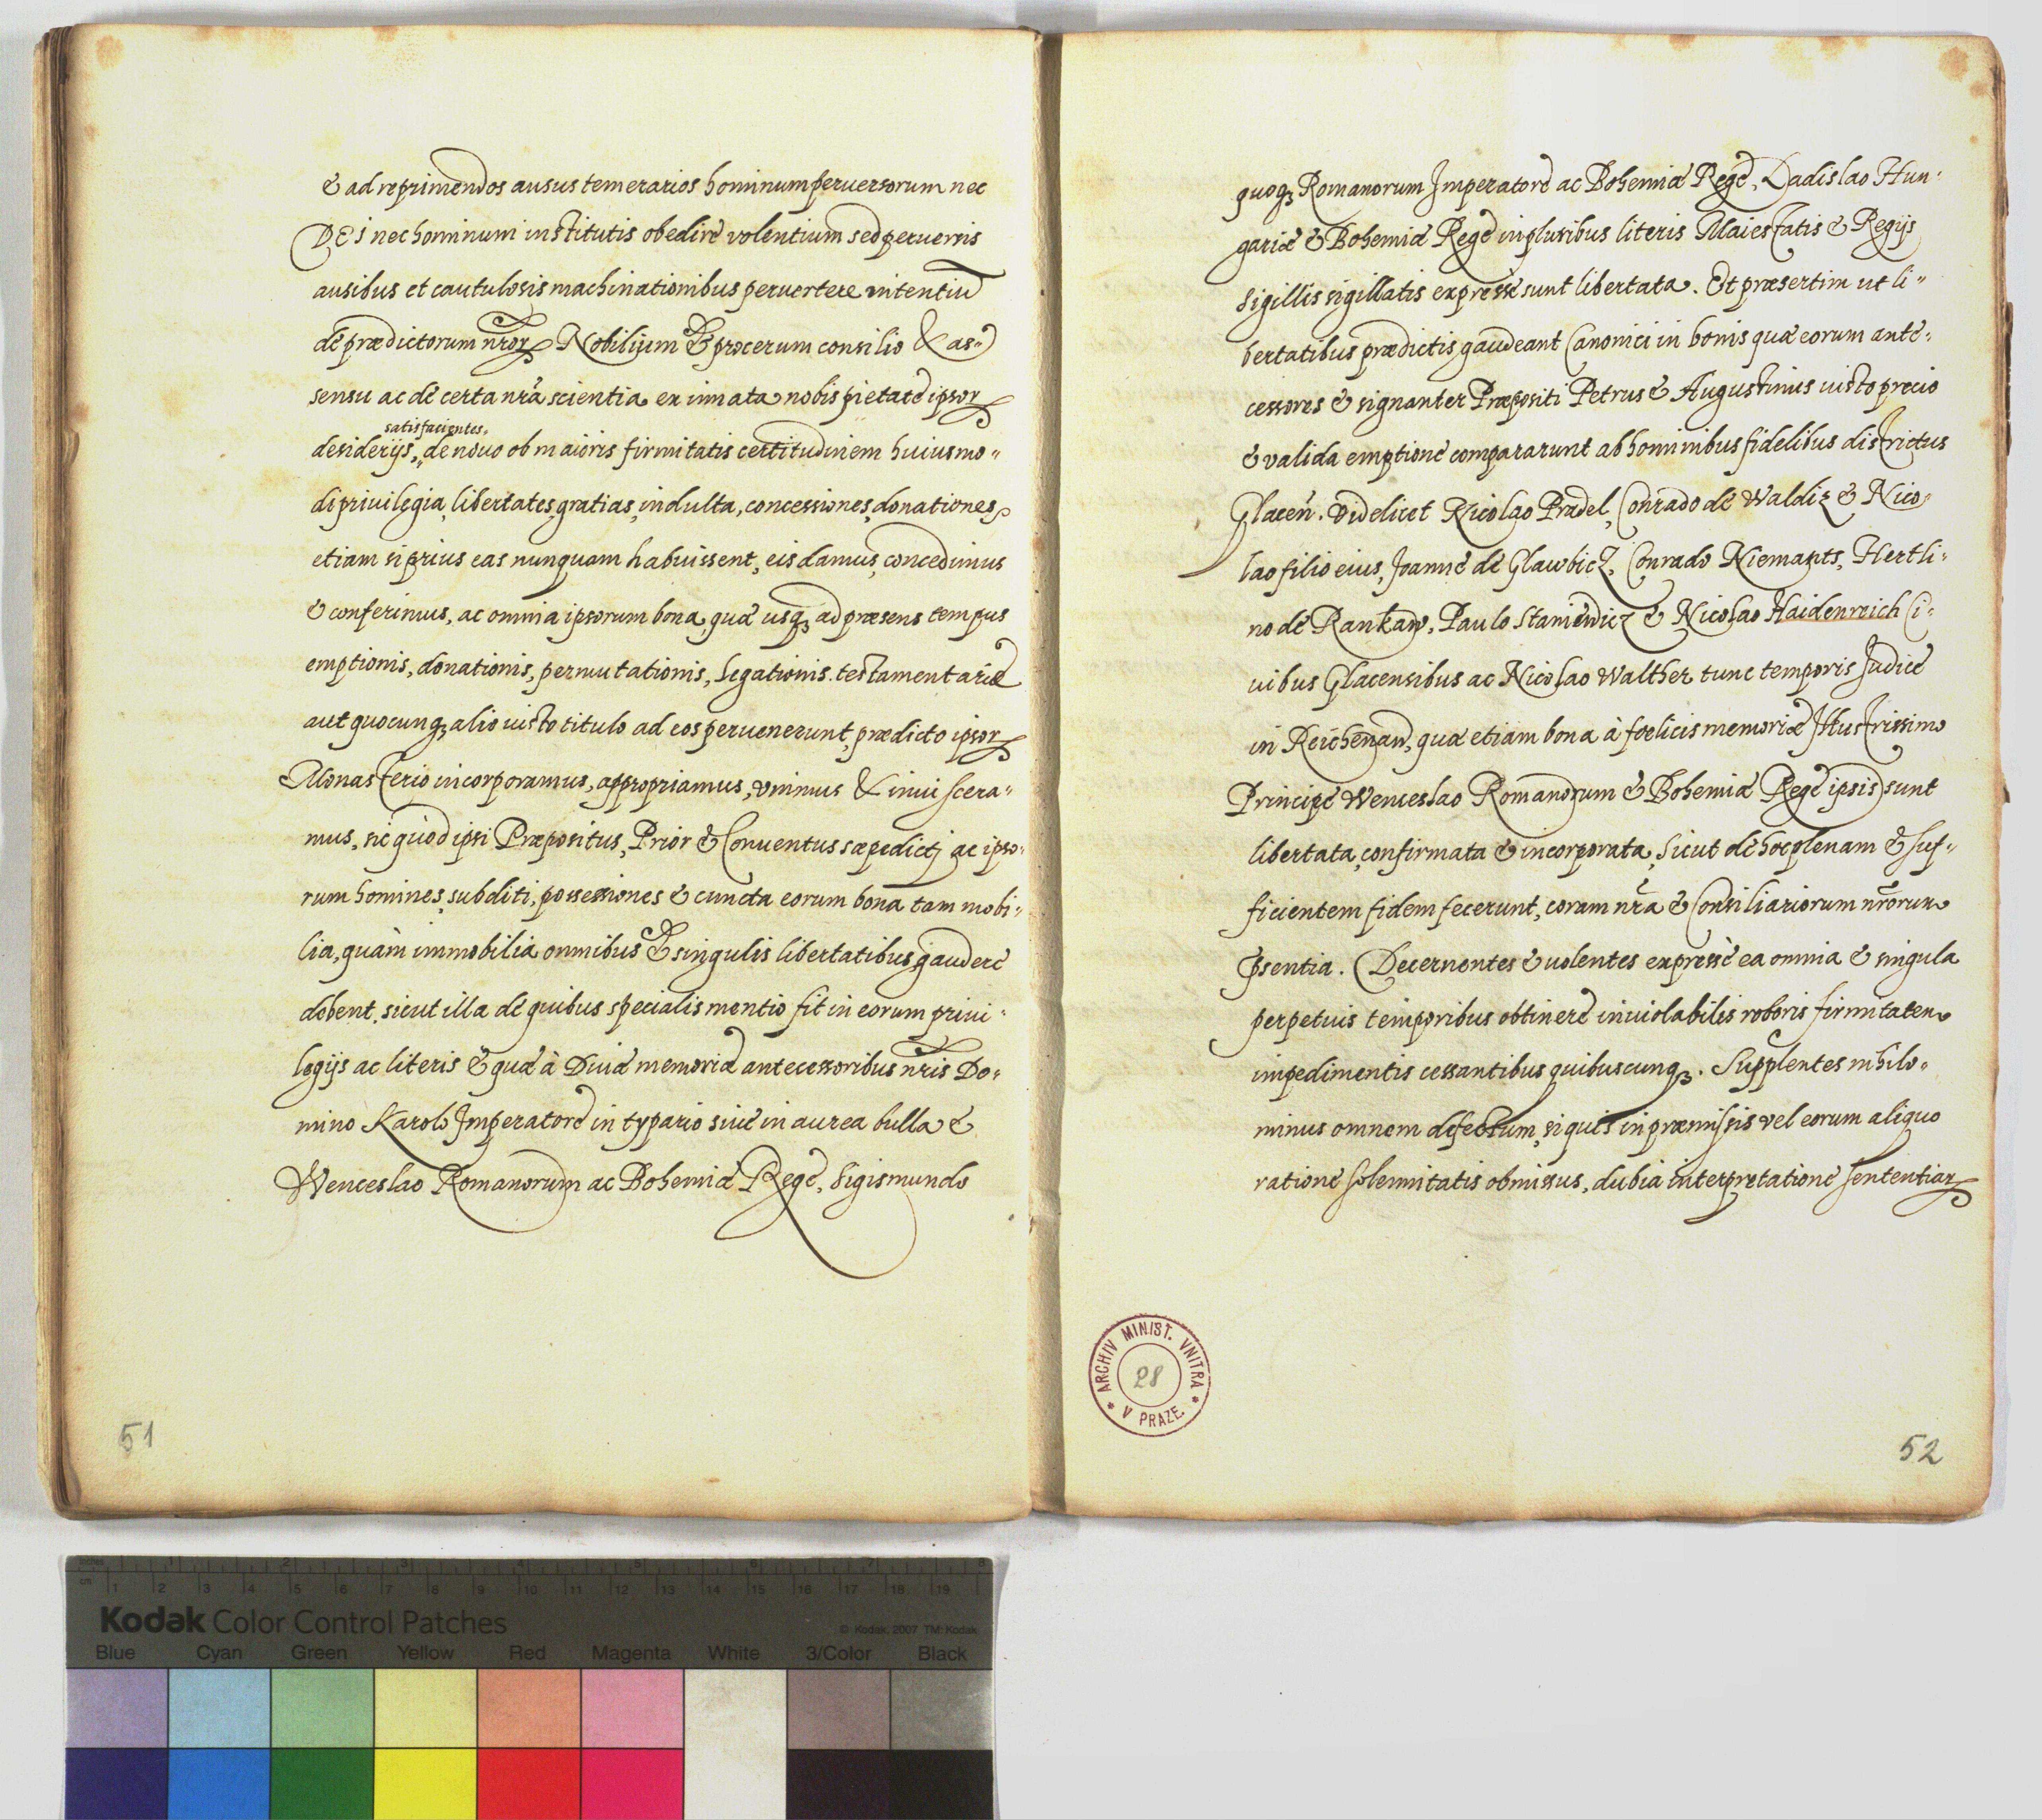 & ad reprimendos ausus temerarios hominum peruersorum nec
DEI nec hominum institutis obedire volentium sed peruersis
ausibus et cautulosis machinationibus peruertere intentiū
de prædictorum nr̄oꝝ Nobilium & procerum consilio & as-
sensu ac de certa nr̄a scientia ex innata nobis pietate ipsoꝝ
satisfacientes,
desiderijs, de nouo ob maioris firmitatis certitudinem huiusmo-
di priuilegia, libertates, gratias, indulta, concessiones, donationes,
etiam si prius eas nunquam habuissent, eis damus, concedimus
& conferimus, ac omnia ipsorum bona, quæ usqꝫ ad præsens tempus
emptionis, donationis, permutationis, legationis testamentariæ
aut quocunqꝫ alio iusto titulo ad eos peruenerunt, prædicto ipsoꝝ
Monasterio incorporamus, appropriamus, vnimus & inuiscera-
mus, sic quòd ipsi Præpositus, Prior & Conuentus sæpedictj ac ipso-
rum homines, subditi, possessiones & cuncta eorum bona tam mobi-
lia, quàm immobilia omnibus & singulis libertatibus gaudere
debent, sicut illa de quibus specialis mentio fit in eorum priui-
legijs ac literis & quæ à Diuæ memoriæ antecessoribus nr̄is Do-
mino Karolo Imperatore in typario siue in aurea bulla &
Wenceslao Romanorum ac Bohemiæ Rege, Sigismundo
51
quoqꝫ Romanorum Imperatore ac Bohemiæ Rege, Ladislao Hun-
gariæ & Bohemiæ Rege in pluribus literis Maiestatis & Regijs
sigillis sigillatis expressè sunt libertata. Et præsertim ut li-
bertatibus prædictis gaudeant Canonici in bonis quæ eorum ante-
cessores & signanter Præpositi Petrus & Augustinus iusto precio
& valida emptione compararunt ab hominibus fidelibus districtus
Glacen̄. Videlicet Nicolao Pradel, Conrado de Waldiz & Nico-
lao filio eius, Joanne de Glawbicz, Conrado Niemants, Hertli-
no de Rankaw, Paulo Staniewicz & Nicolao Haidenreich Ci-
uibus Glacensibus ac Nicolao Walther tunc temporis Judice
in Reichenaw, quæ etiam bona à fœlicis memoriæ Illustrissimo
Principe Wenceslao Romanorum & Bohemiæ Rege ipsis sunt
libertata, confirmata & incorporata, sicut de hoc plenam & suf-
ficientem fidem fecerunt, coram nr̄a & Consiliariorum nr̄orum
p̄sentia. Decernentes & uolentes expressè ea omnia & singula
perpetuis temporibus obtinere inuiolabilis roboris firmitatem
impedimentis cessantibus quibuscunqꝫ. Supplentes nihilo-
minus omnem defectum, si quis in præmissis vel eorum aliquo
ratione solennitatis obmissus, dubia interpretatione sententiaꝝ
ARCHIV MINIST. VNITRA
V PRAZE.
28
52
Kodak Color Control Patches
© Kodak, 2007 TM: Kodak
Blue Cyan Green Yellow Red Magenta White 3/Color Black